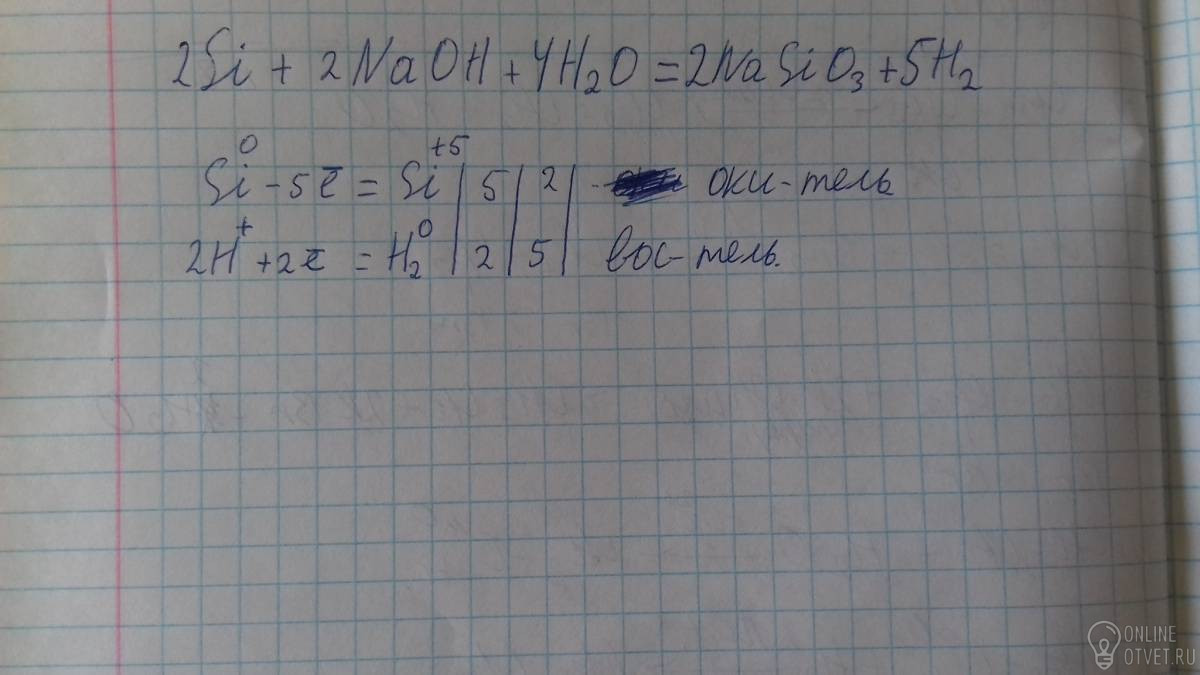 2Si + 2NaOH + 4H₂O = 2NaSiO₃ + 5H₂
Si⁰ - 5ē = Si⁺⁵ | 5 | 2 | оки-тель
2H⁺ + 2ē = H₂⁰ | 2 | 5 | вос-тель.
ONLINE
OTVET.RU